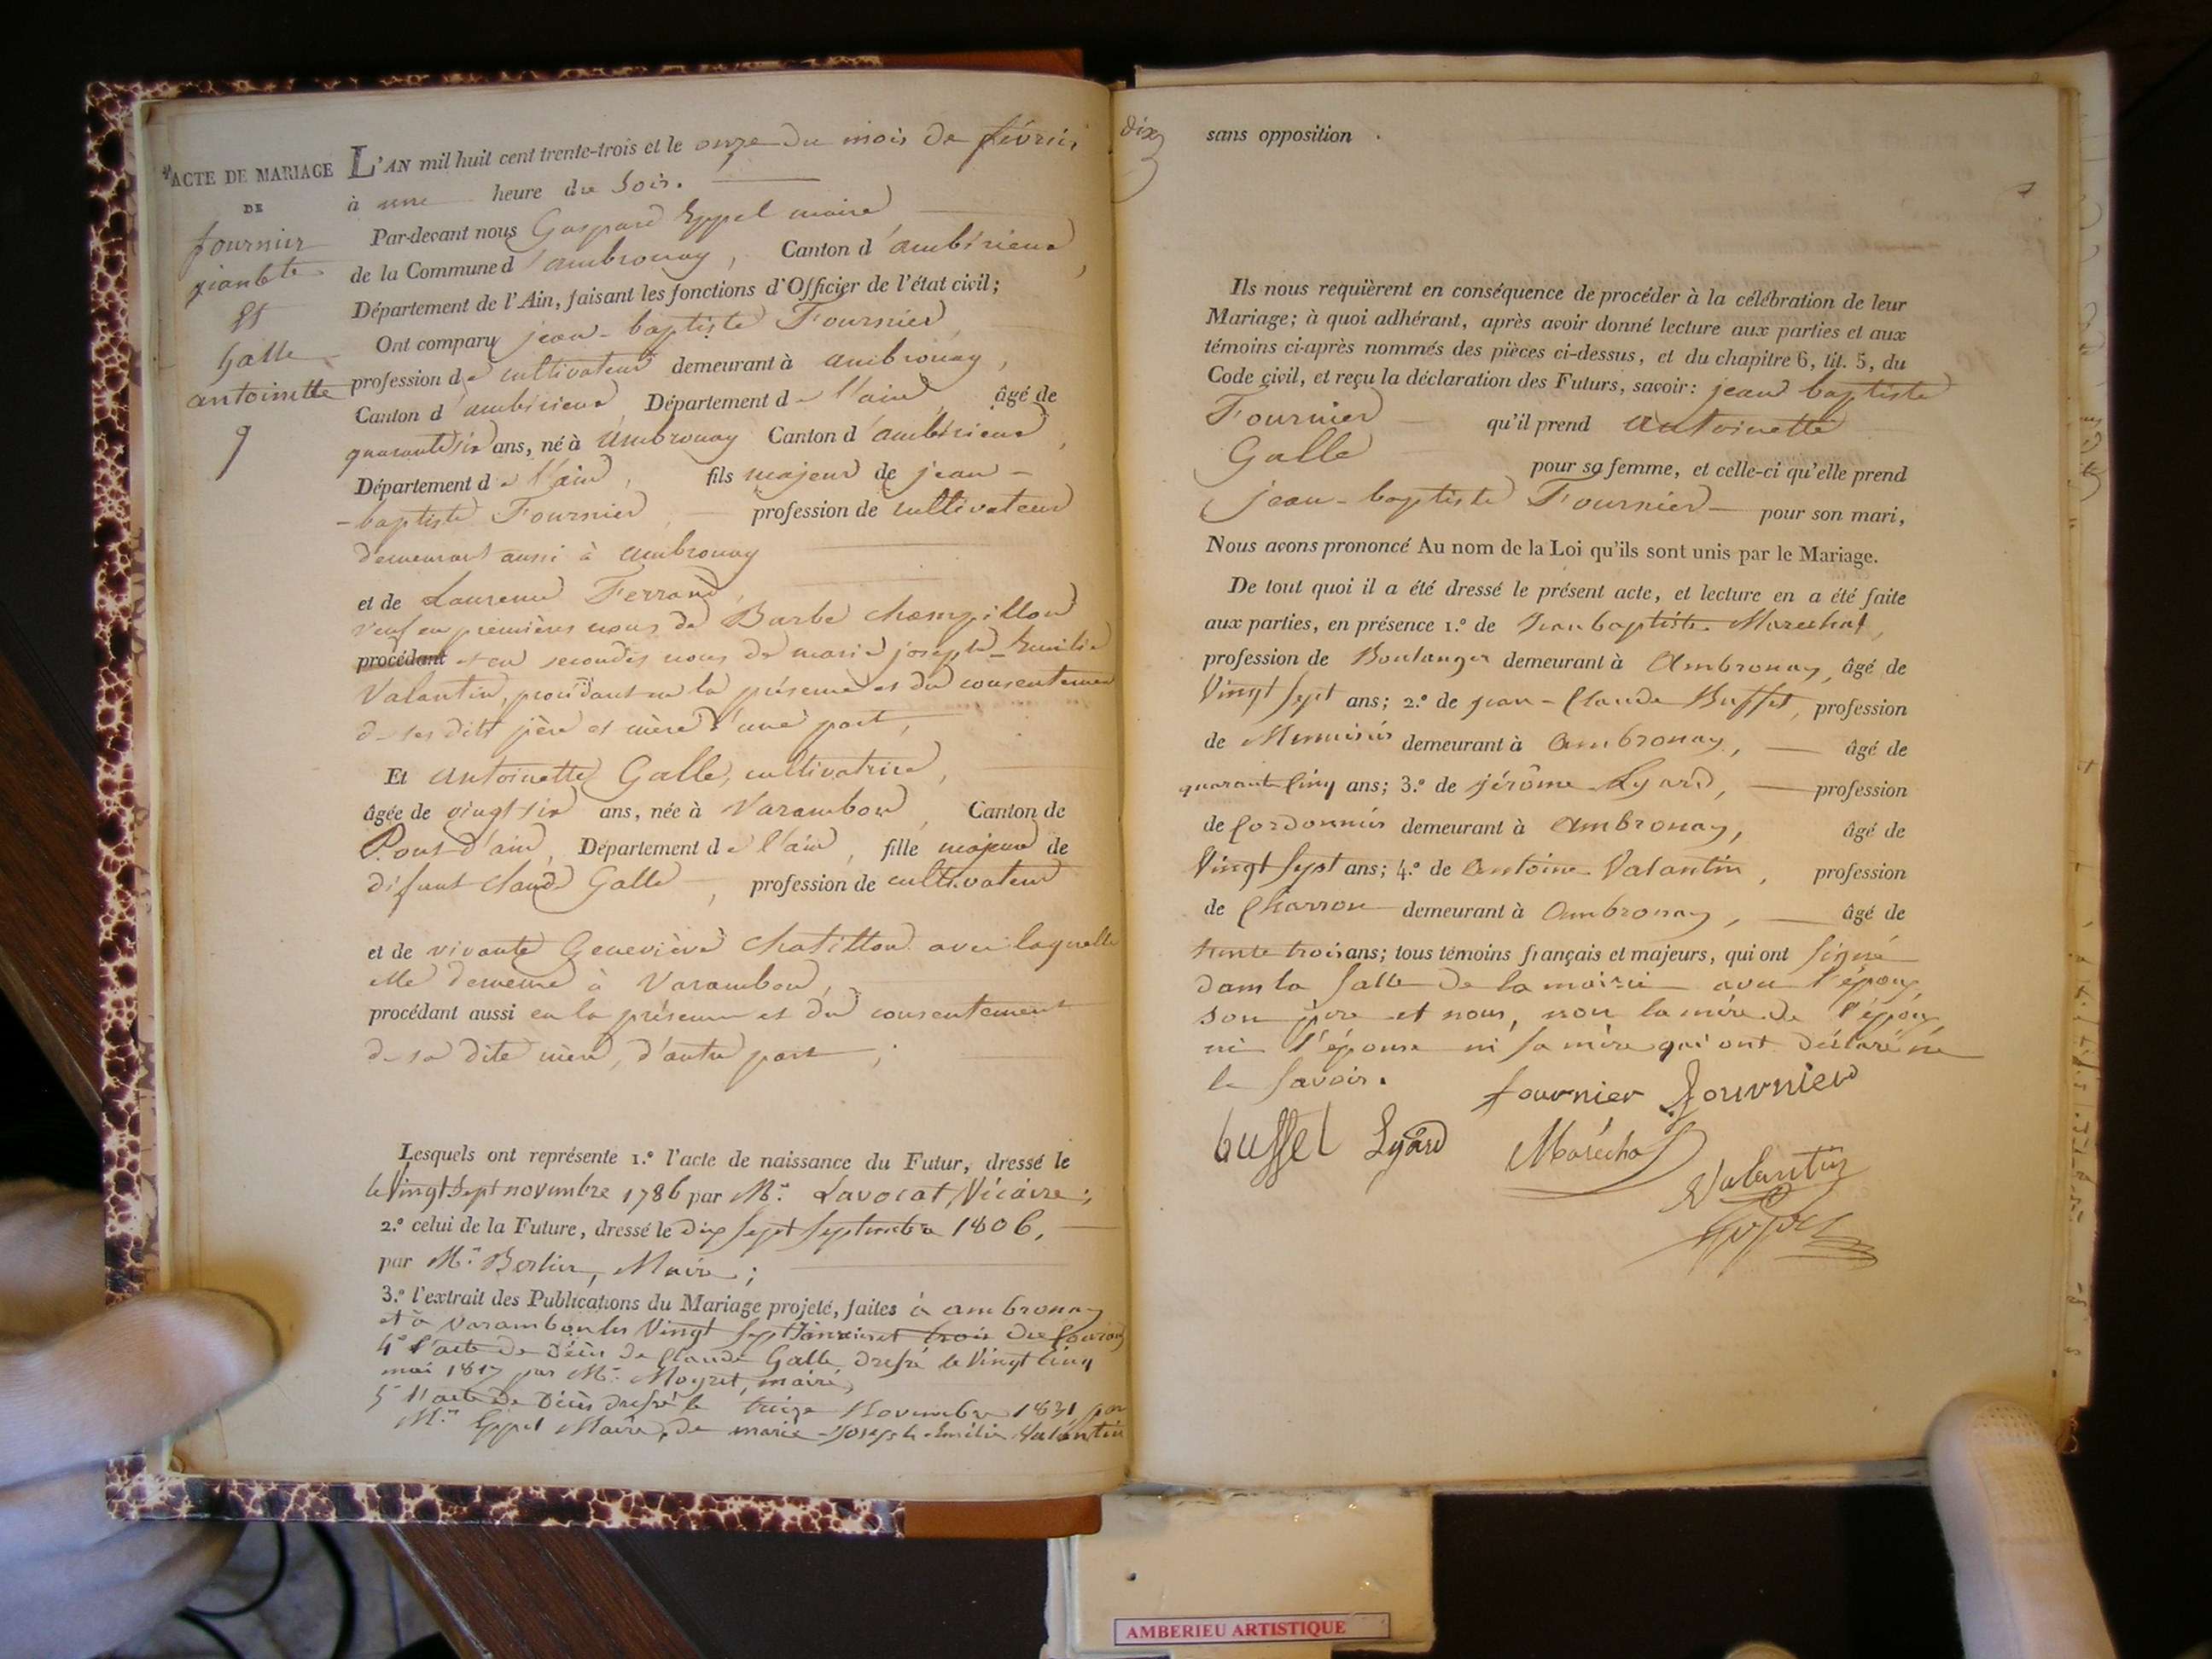 ACTE DE MARIAGE
DE
fournier
jeanbte
Et
Galle
antoinette
9
L'AN mil huit cent trente-trois et le onze du mois de février
à une heure du soir.
Par-devant nous Gaspard Eppel maire
de la Commune d'ambronay, Canton d'ambérieux,
Département de l'Ain, faisant les fonctions d'Officier de l'état civil;
Ont comparu jean-baptiste Fournier,
profession de cultivateur demeurant à ambronay,
Canton d'ambérieux, Département de l'ain, âgé de
quarante six ans, né à Ambronay Canton d'ambérieux,
Département de l'ain, fils majeur de jean-
-baptiste Fournier, profession de cultivateur
demeurant aussi à ambronay
et de Laurence Ferrand,
veuf en premières noces de Barbe Champillon
procédant et en secondes noces de marie joseph-Emilie
Valantin, procédant en la présence et du consentement
de ses dits père et mère d'une part,
Et Antoinette Galle, cultivatrice,
âgée de vingt six ans, née à Varambon, Canton de
Pont d'ain, Département de l'ain, fille majeure de
défunt claude Galle, profession de cultivateur
et de vivante Geneviève Chatillon avec laquelle
elle demeure à Varambon,
procédant aussi en la présence et du consentement
de sa dite mère, d'autre part;
Lesquels ont représenté 1.º l'acte de naissance du Futur, dressé le
le Vingt Sept novembre 1786 par Mr. Lavocat, Vicaire;
2.º celui de la Future, dressé le dix sept septembre 1806,
par Mr. Berlier, Maire;
3.º l'extrait des Publications du Mariage projeté, faites à ambronay
et à Varambon les Vingt sept Janvier et trois du Courant
4º l'acte de décès de Claude Galle dressé le Vingt Cinq
mai 1817 par Mr. Moyret, maire,
5º l'acte de Décès dressé le treize Novembre 1831 par
Mr. Eppel Maire, de marie-Joseph-Emilie Valantin
dix
sans opposition.
Ils nous requièrent en conséquence de procéder à la célébration de leur
Mariage; à quoi adhérant, après avoir donné lecture aux parties et aux
témoins ci-après nommés des pièces ci-dessus, et du chapitre 6, tit. 5, du
Code civil, et reçu la déclaration des Futurs, savoir: jean baptiste
Fournier qu'il prend Antoinette
Galle pour sa femme, et celle-ci qu'elle prend
jean-baptiste Fournier pour son mari,
Nous avons prononcé Au nom de la Loi qu'ils sont unis par le Mariage.
De tout quoi il a été dressé le présent acte, et lecture en a été faite
aux parties, en présence 1.º de Jean baptiste Marechal,
profession de Boulanger demeurant à Ambronay, âgé de
Vingt sept ans; 2.º de jean-Claude Buffet, profession
de Menuisier demeurant à Ambronay, âgé de
quarante Cinq ans; 3.º de jérôme Lyard, profession
de Cordonnier demeurant à Ambronay, âgé de
Vingt sept ans; 4.º de Antoine Valantin, profession
de Charron demeurant à Ambronay, âgé de
trente trois ans; tous témoins français et majeurs, qui ont signé
dans la Salle de la mairie avec l'époux,
son père et nous, non la mère de l'époux
ni l'épouse ni sa mère qui ont déclaré ne
le savoir.
fournier fournier
buffet Lyard Maréchal
Valantin
Eppel
AMBERIEU ARTISTIQUE